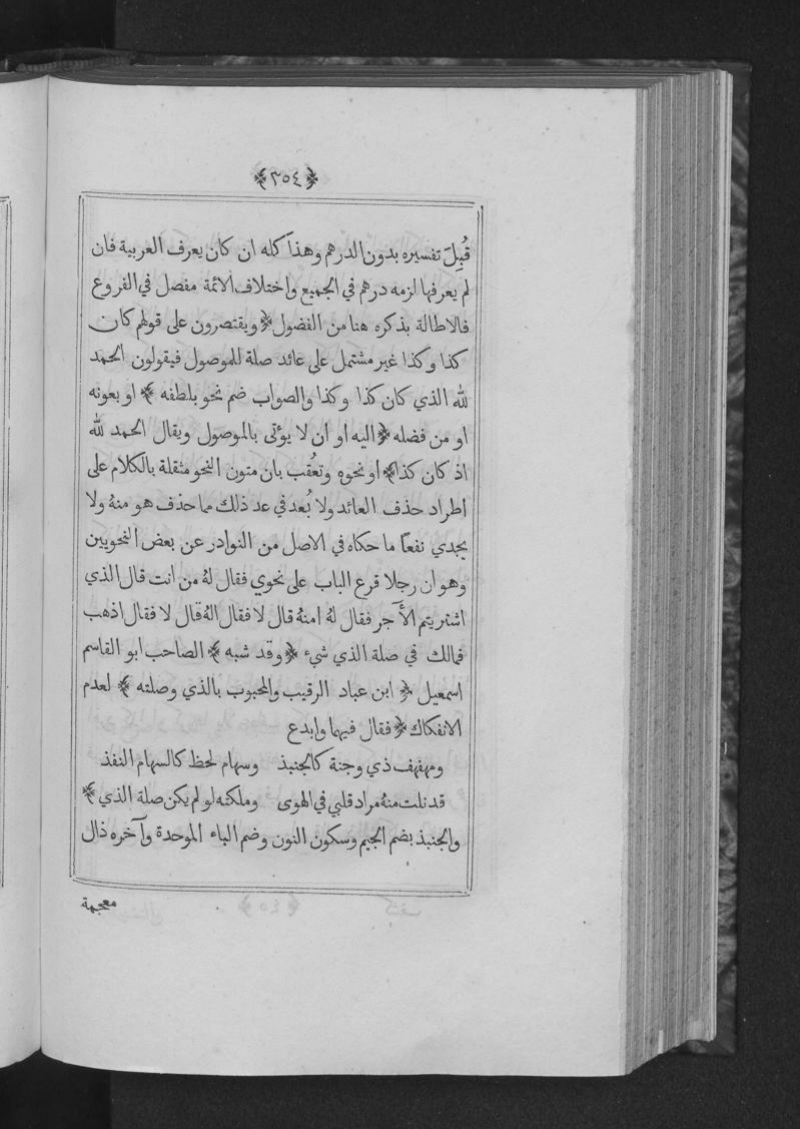 ﴿٣٥٤﴾
قُبِلَ تفسيره بدون الدرهم وهذا كله ان كان يعرف العربية فان
لم يعرفها لزمه درهم في الجميع واختلاف الائمة مفصل في الفروع
فالاطالة بذكره هنا من الفضول ﴿ ويقتصرون على قولهم كان
كذا وكذا غير مشتمل على عائد صلة للموصول فيقولون الحمد
لله الذي كان كذا وكذا والصواب ضم نحو بلطفه ﴾ او بعونه
او من فضله ﴿ اليه او ان لا يؤتى بالموصول ويقال الحمد لله
اذ كان كذا ﴾ او نحوه وتعُقب بان متون النحو مثقلة بالكلام على
اطراد حذف العائد ولا بُعد في عد ذلك مما حذف هو منهُ ولا
يجدي نفعاً ما حكاه في الاصل من النوادر عن بعض النحويين
وهو ان رجلا قرع الباب على نحوي فقال لهُ من انت قال الذي
اشتريتم الآجر فقال لهُ امنهُ قال لا فقال الهُ قال لا فقال اذهب
فمالك في صلة الذي شيء ﴿ وقد شبه ﴾ الصاحب ابو القاسم
اسمعيل ﴿ ابن عباد الرقيب والمحبوب بالذي وصلته ﴾ لعدم
الانفكاك ﴿ فقال فيهما وابدع
ومهفهف ذي وجنة كالجنبذ وسهام لحظ كالسهام النفذ
قد نلت منهُ مراد قلبي في الهوى وملكته لو لم يكن صلة الذي ﴾
والجنبذ بضم الجيم وسكون النون وضم الباء الموحدة وآخره ذال
معجمة